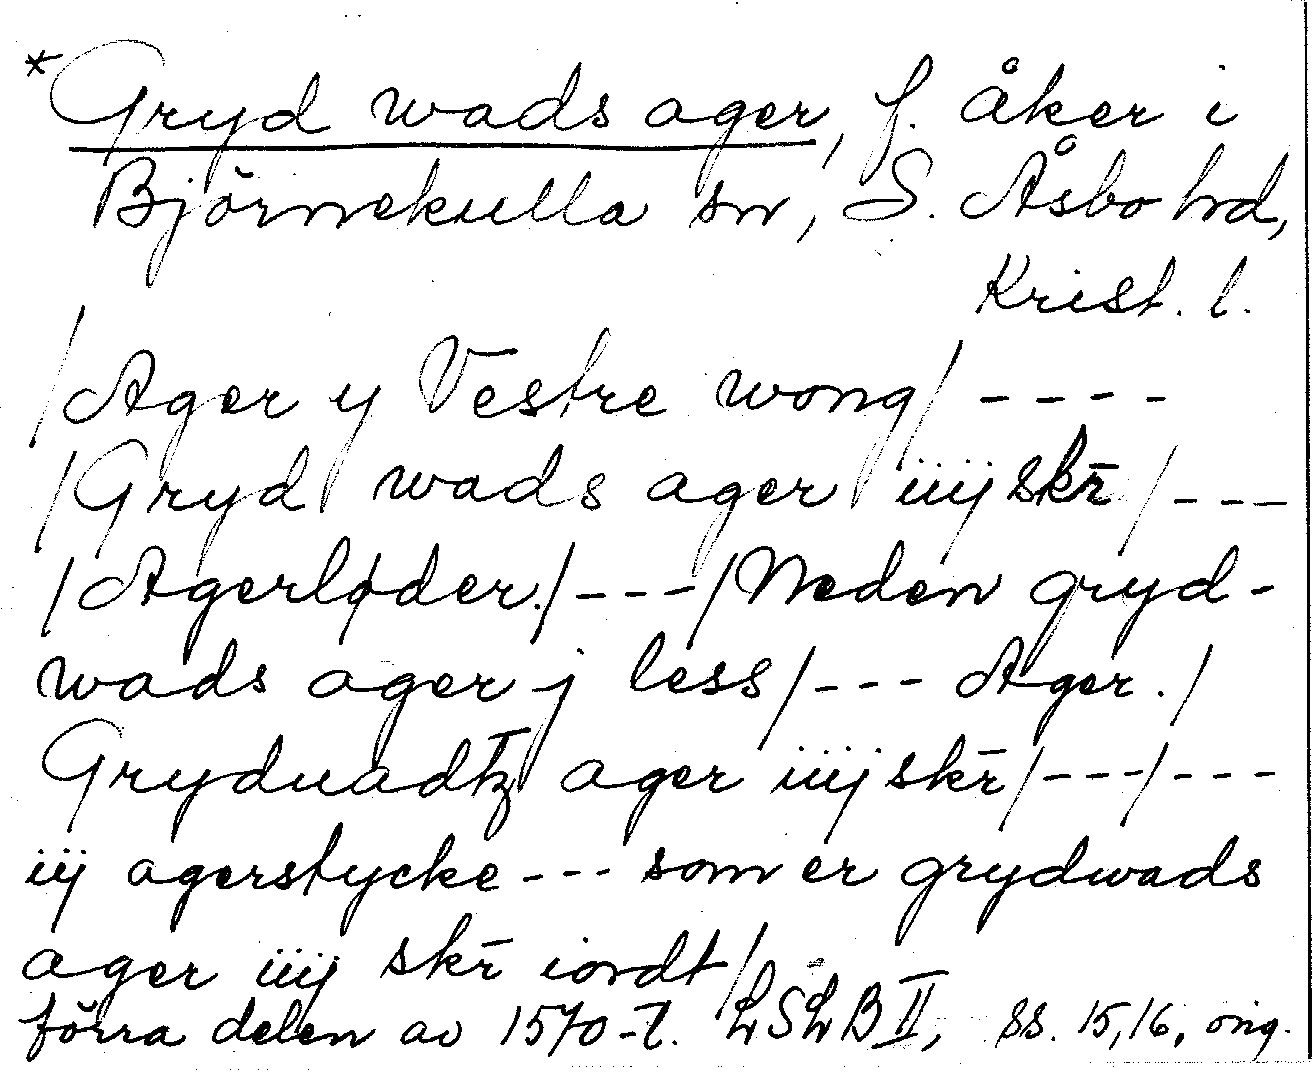 *Gryd wads ager, f. åker i
Björnekulla sn, S. Åsbo hd,
Krist. l.
/Ager y Vestre wong/ ----
/Gryd wads ager iiij skr̄/ ---
/Agerløder./---/Neden gryd-
wads ager j less/--- Ager./
Gryduadtz ager iiij skr̄/---/---
iij agerstycke --- som er grydwads
ager iiij skr̄ iordt/
förra delen av 1570-t. LSLB II, ss. 15, 16, orig.